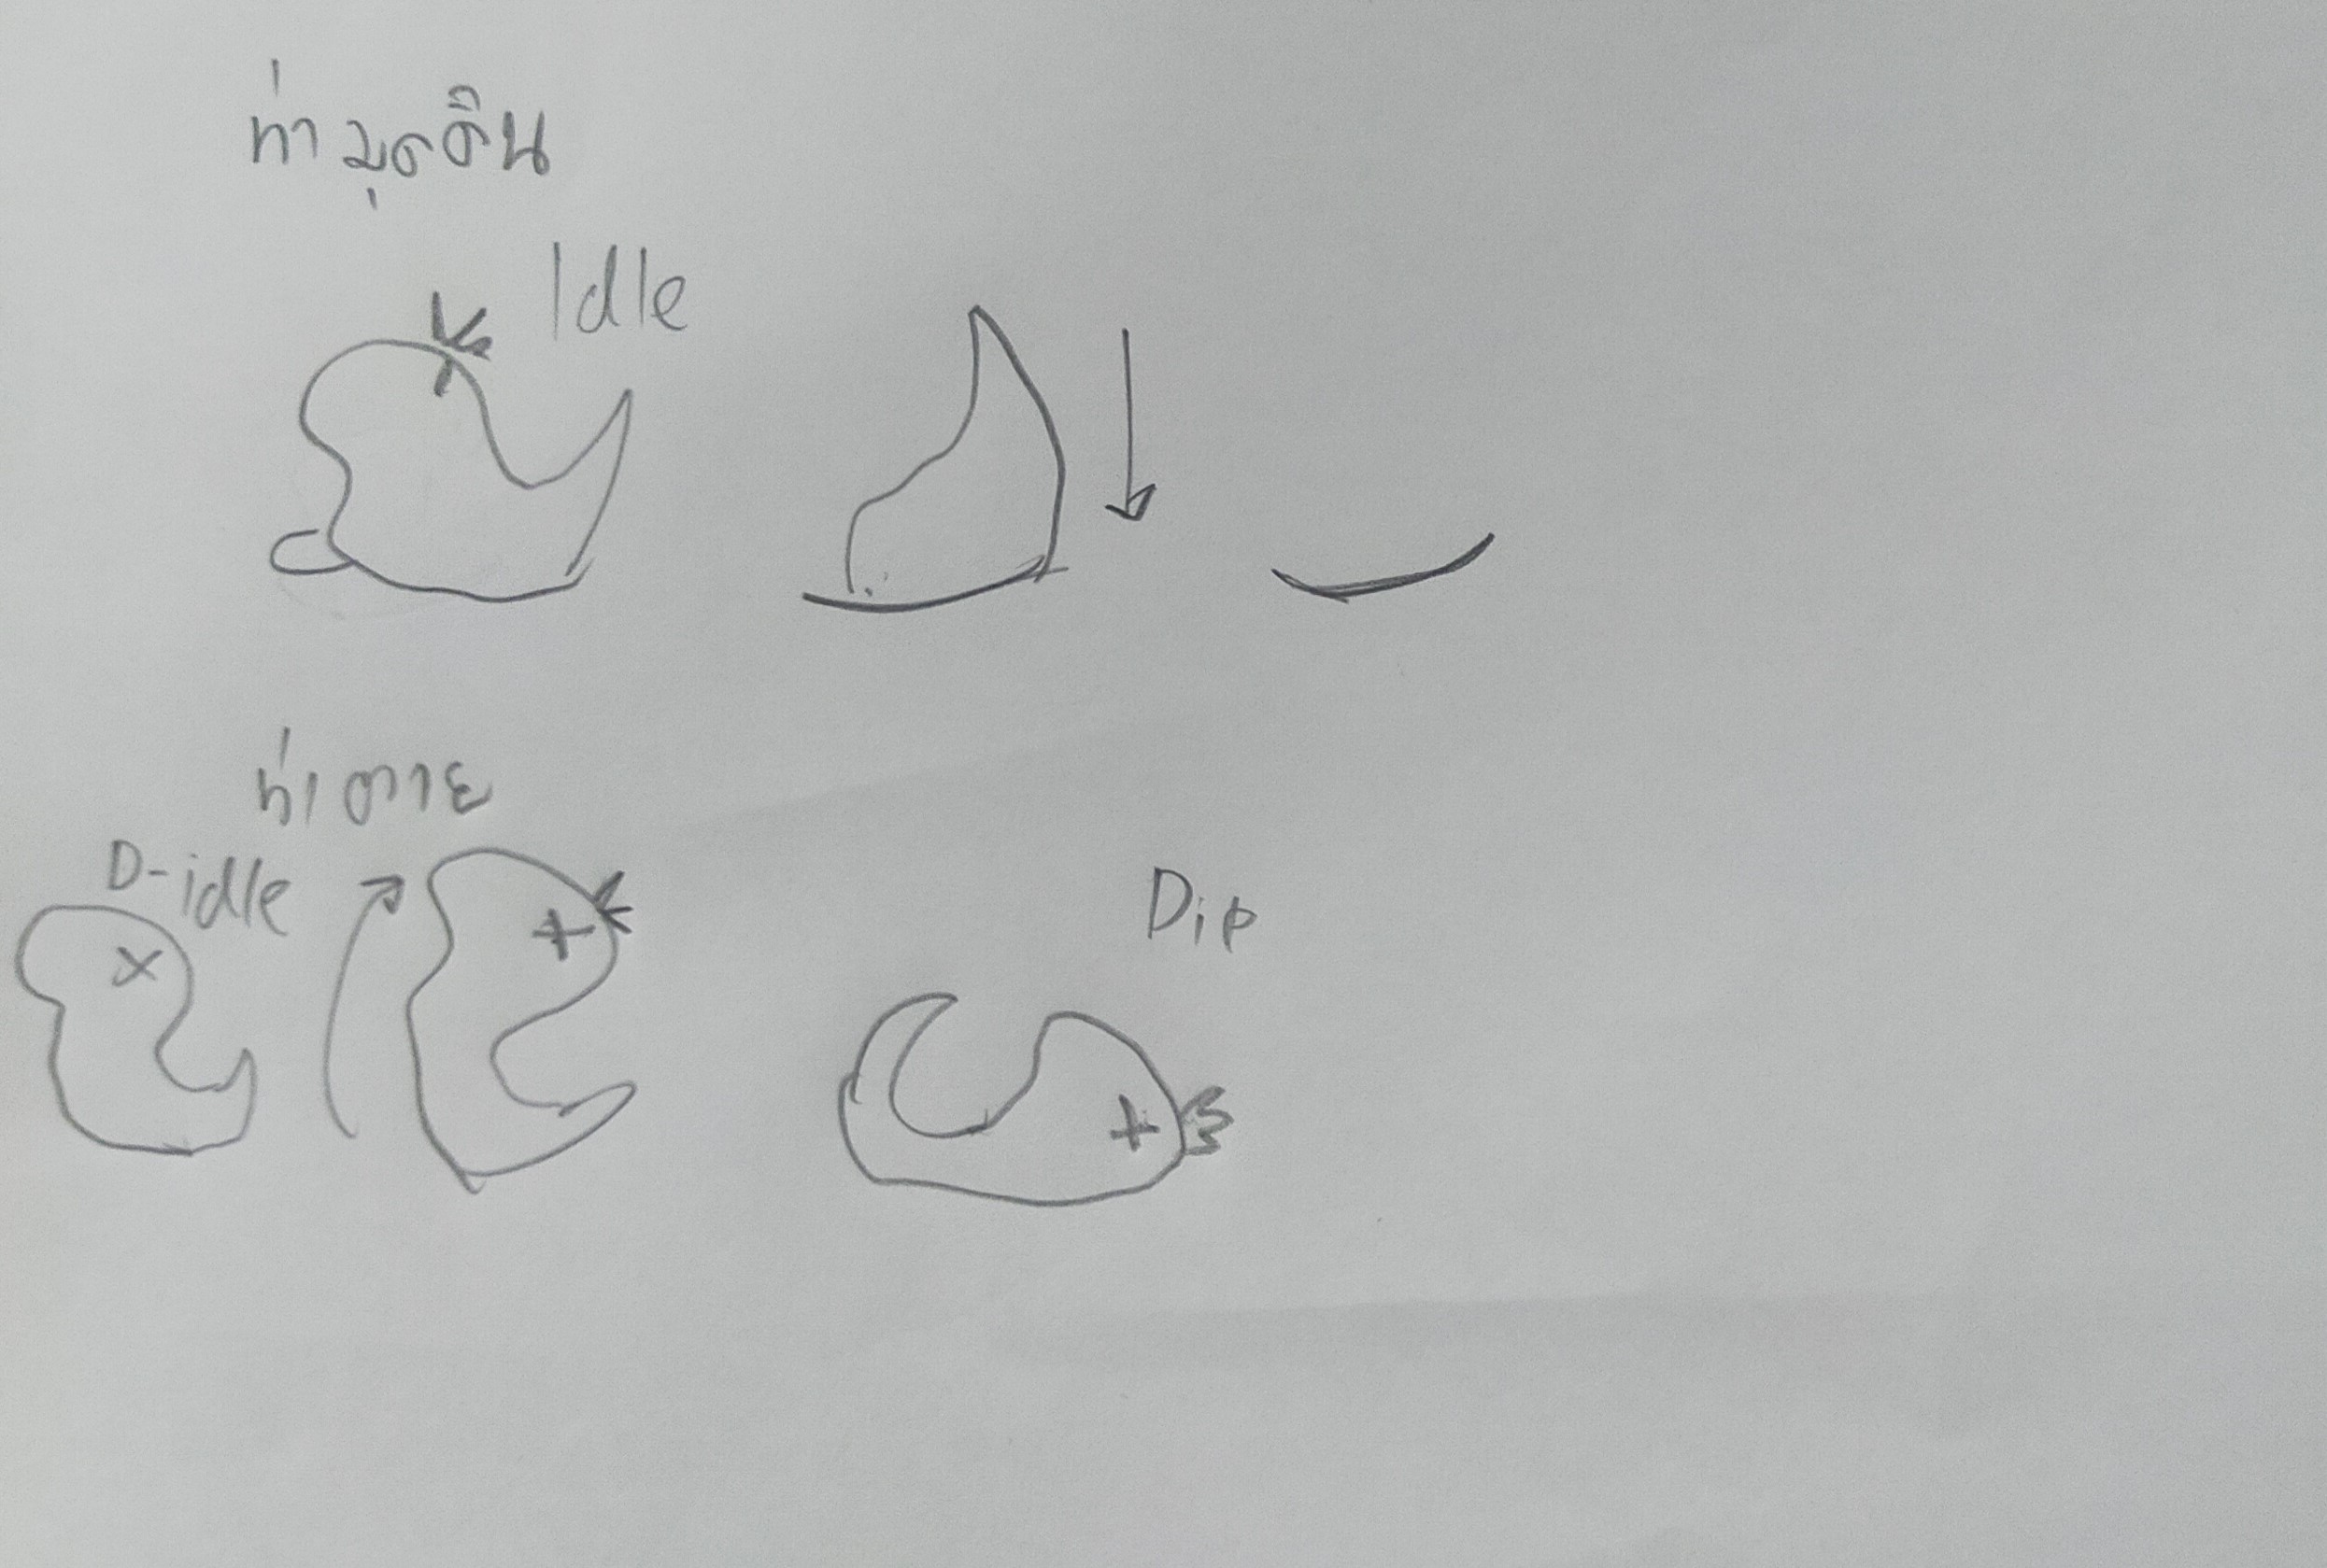 ท่ามุดดิน
Idle
ท่าตาย
D-idle
Dip